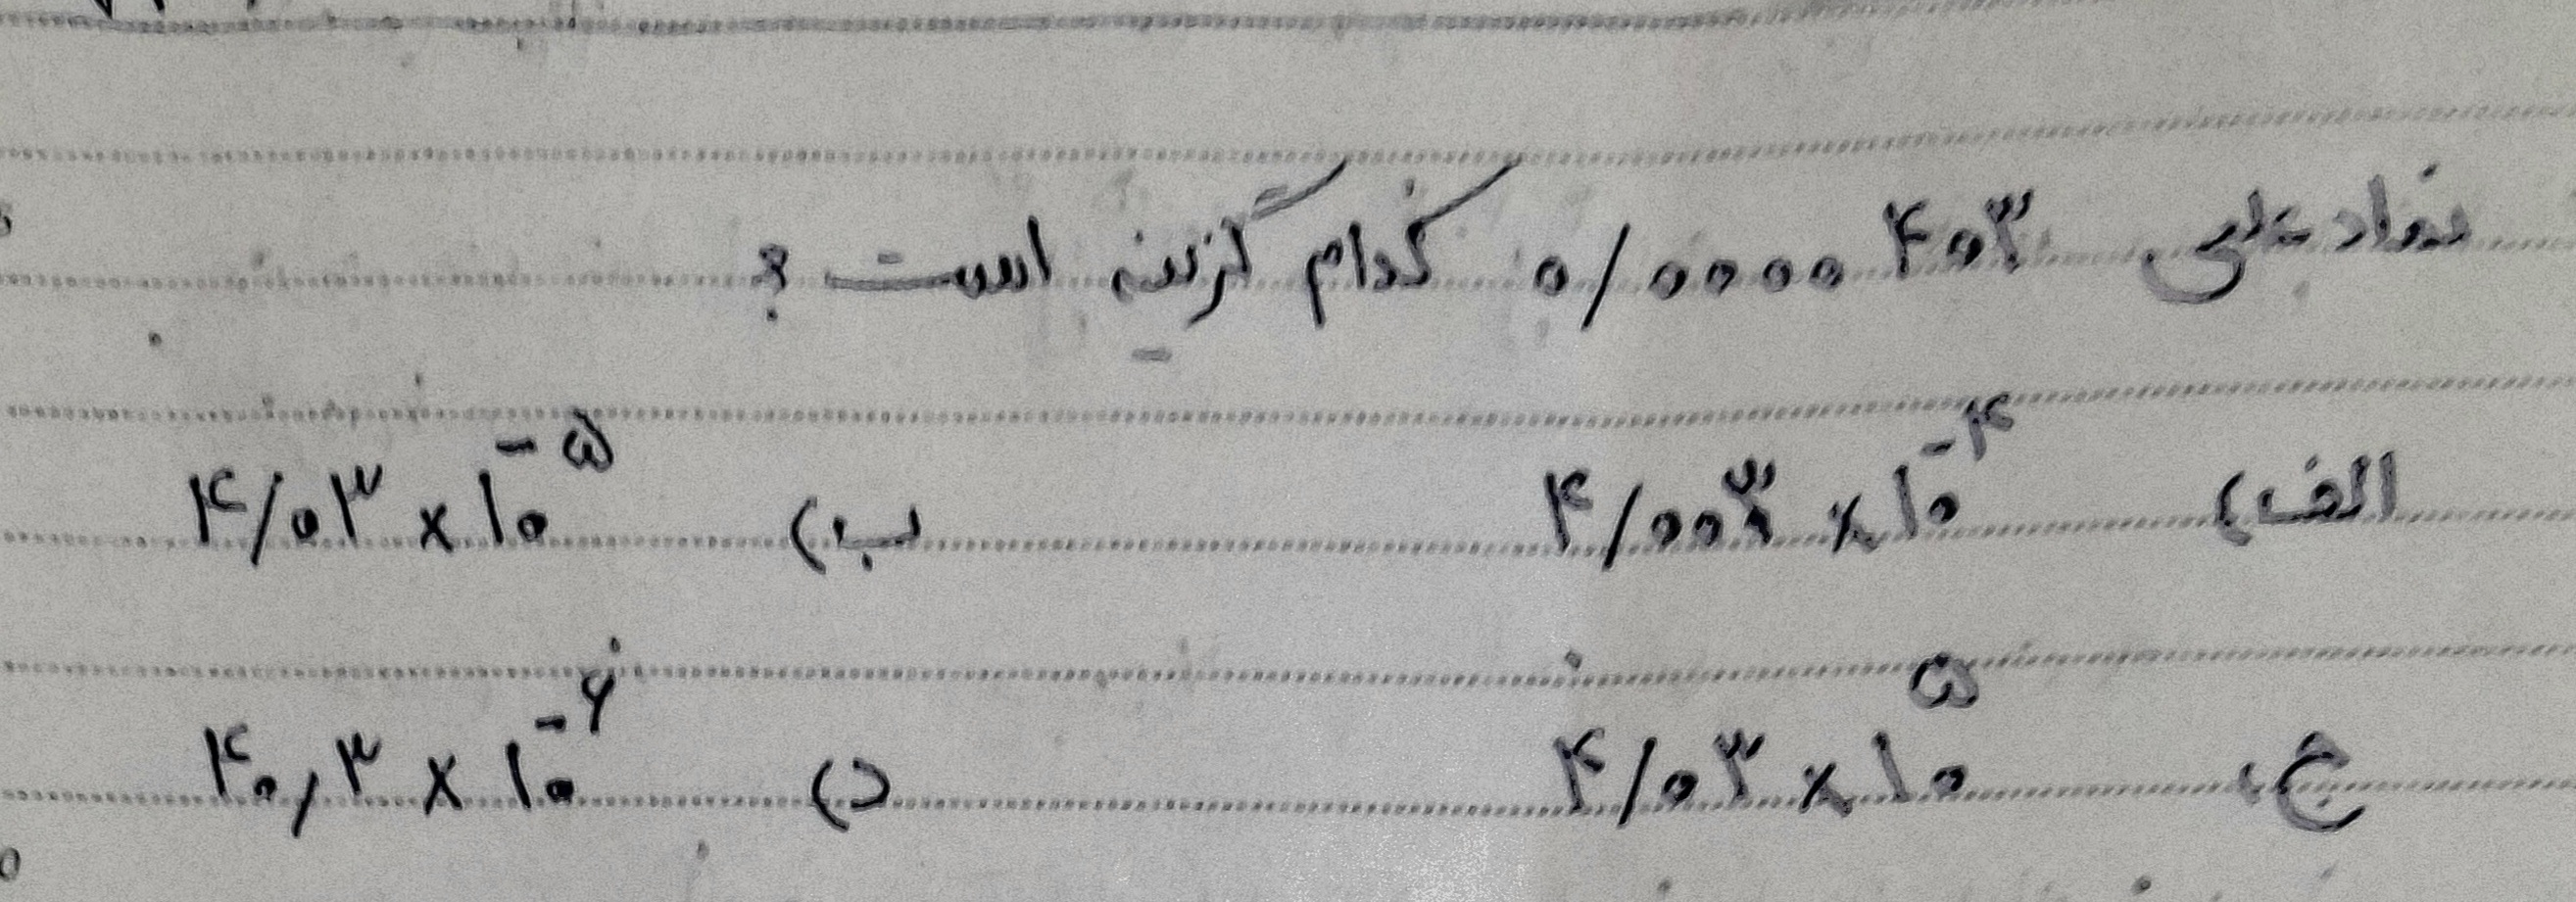 نماد علمی ۰/۰۰۰۰۴۰۳ کدام گزینه است ؟
الف) ۴/۰۰۳ × ۱۰^-۴ ب) ۴/۰۳ × ۱۰^-۵
ج) ۴/۰۳ × ۱۰^۵ د) ۴۰٫۳ × ۱۰^-۶